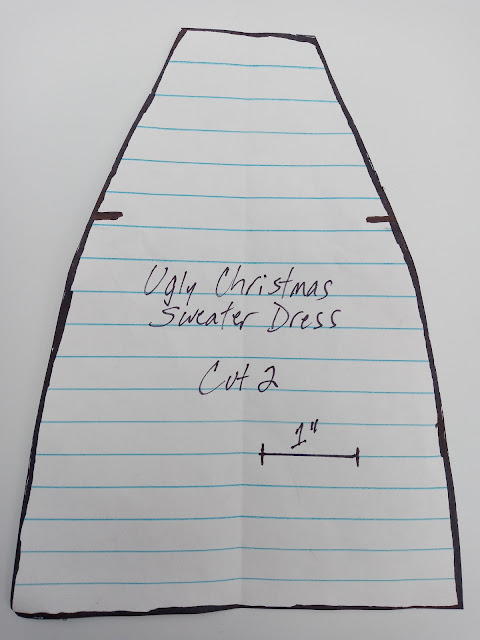 Ugly Christmas
Sweater Dress
Cut 2
1"